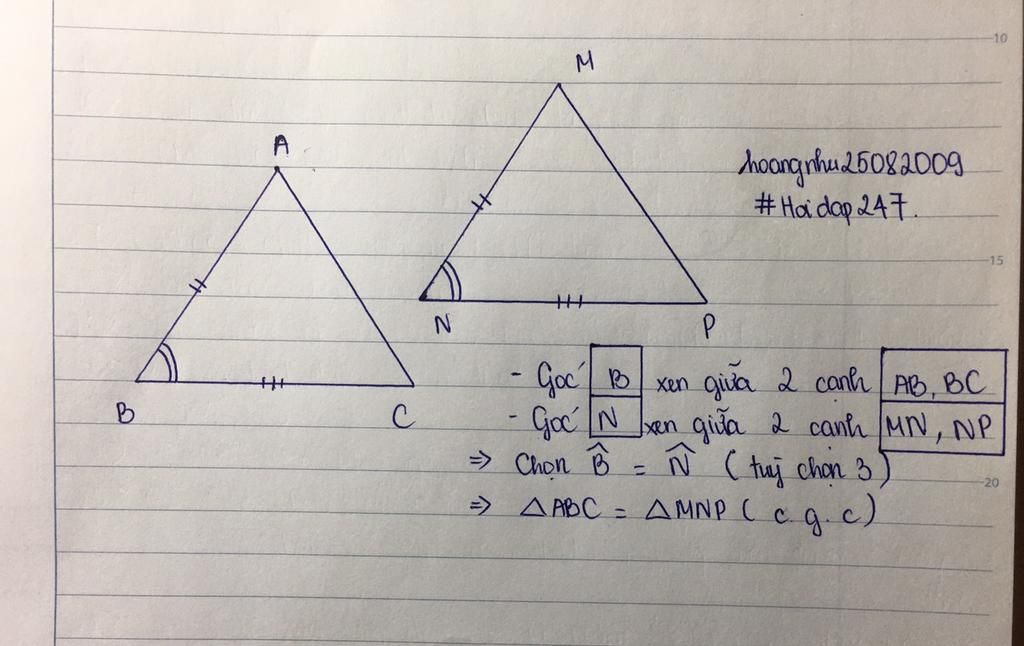 10
M
A
hoangnhu25082009
#Hoidap247.
15
N
P
B
C
- Góc B xen giữa 2 cạnh AB, BC
- Góc N xen giữa 2 cạnh MN, NP
=> Chọn B̂ = N̂ (tuỳ chọn 3)
20
=> △ABC = △MNP (c.g.c)